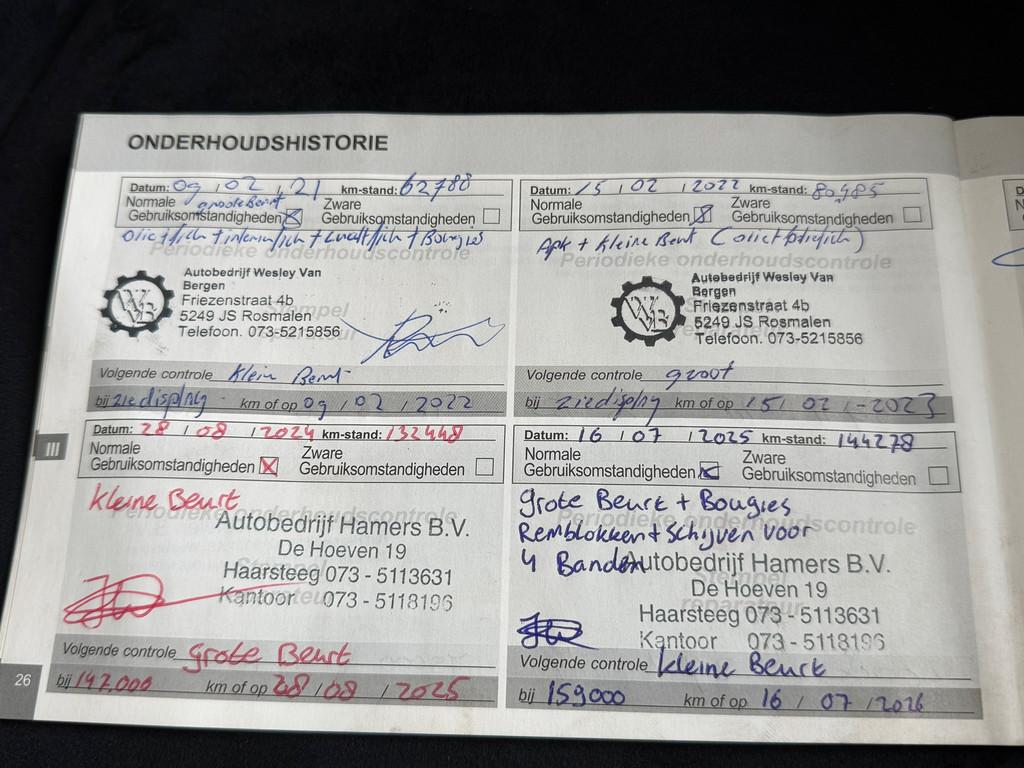 ONDERHOUDSHISTORIE
Datum: 09 / 02 / 21 km-stand: 62788
Normale groote Beurt Zware
Gebruiksomstandigheden Gebruiksomstandigheden
Periodieke onderhoudscontrole
Autobedrijf Wesley Van
Bergen
Friezenstraat 4b
5249 JS Rosmalen
Telefoon. 073-5215856
Stempel
reparateur
Volgende controle Klein Beurt
bij zie display km of op 09 / 02 / 2022
Datum: 15 / 02 / 2022 km-stand: 80485
Normale Zware
Gebruiksomstandigheden Gebruiksomstandigheden
Apk + Kleine Beurt
Periodieke onderhoudscontrole
Autobedrijf Wesley Van
Bergen
Friezenstraat 4b
5249 JS Rosmalen
Telefoon. 073-5215856
Volgende controle groot
bij zie display km of op 15 / 02 / -2023
III
Datum: 28 / 08 / 2024 km-stand: 132448
Normale Zware
Gebruiksomstandigheden Gebruiksomstandigheden
kleine Beurt
Periodieke onderhoudscontrole
Autobedrijf Hamers B.V.
De Hoeven 19
Haarsteeg 073 - 5113631
Kantoor 073 - 5118196
Volgende controle Grote Beurt
bij 147.000 km of op 28 / 08 / 2025
Datum: 16 / 07 / 2025 km-stand: 144278
Normale Zware
Gebruiksomstandigheden Gebruiksomstandigheden
grote Beurt + Bougies
Periodieke onderhoudscontrole
Remblokken + Schijven voor
4 Banden
Autobedrijf Hamers B.V.
Stempel
De Hoeven 19
reparateur
Haarsteeg 073 - 5113631
Kantoor 073 - 5118196
Volgende controle kleine Beurt
bij 159000 km of op 16 / 07 / 2026
26